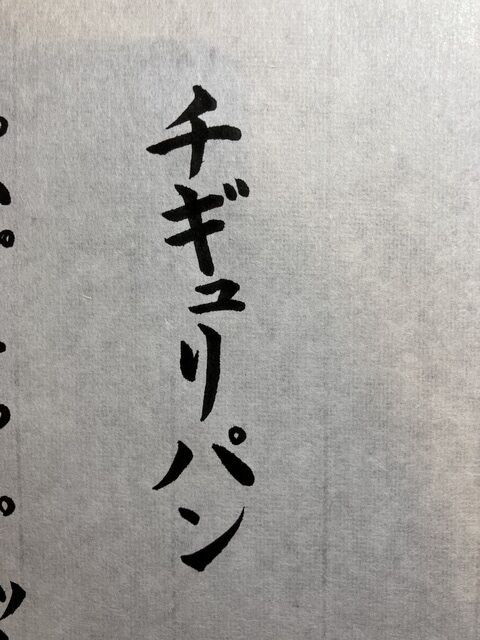 チギュリパン